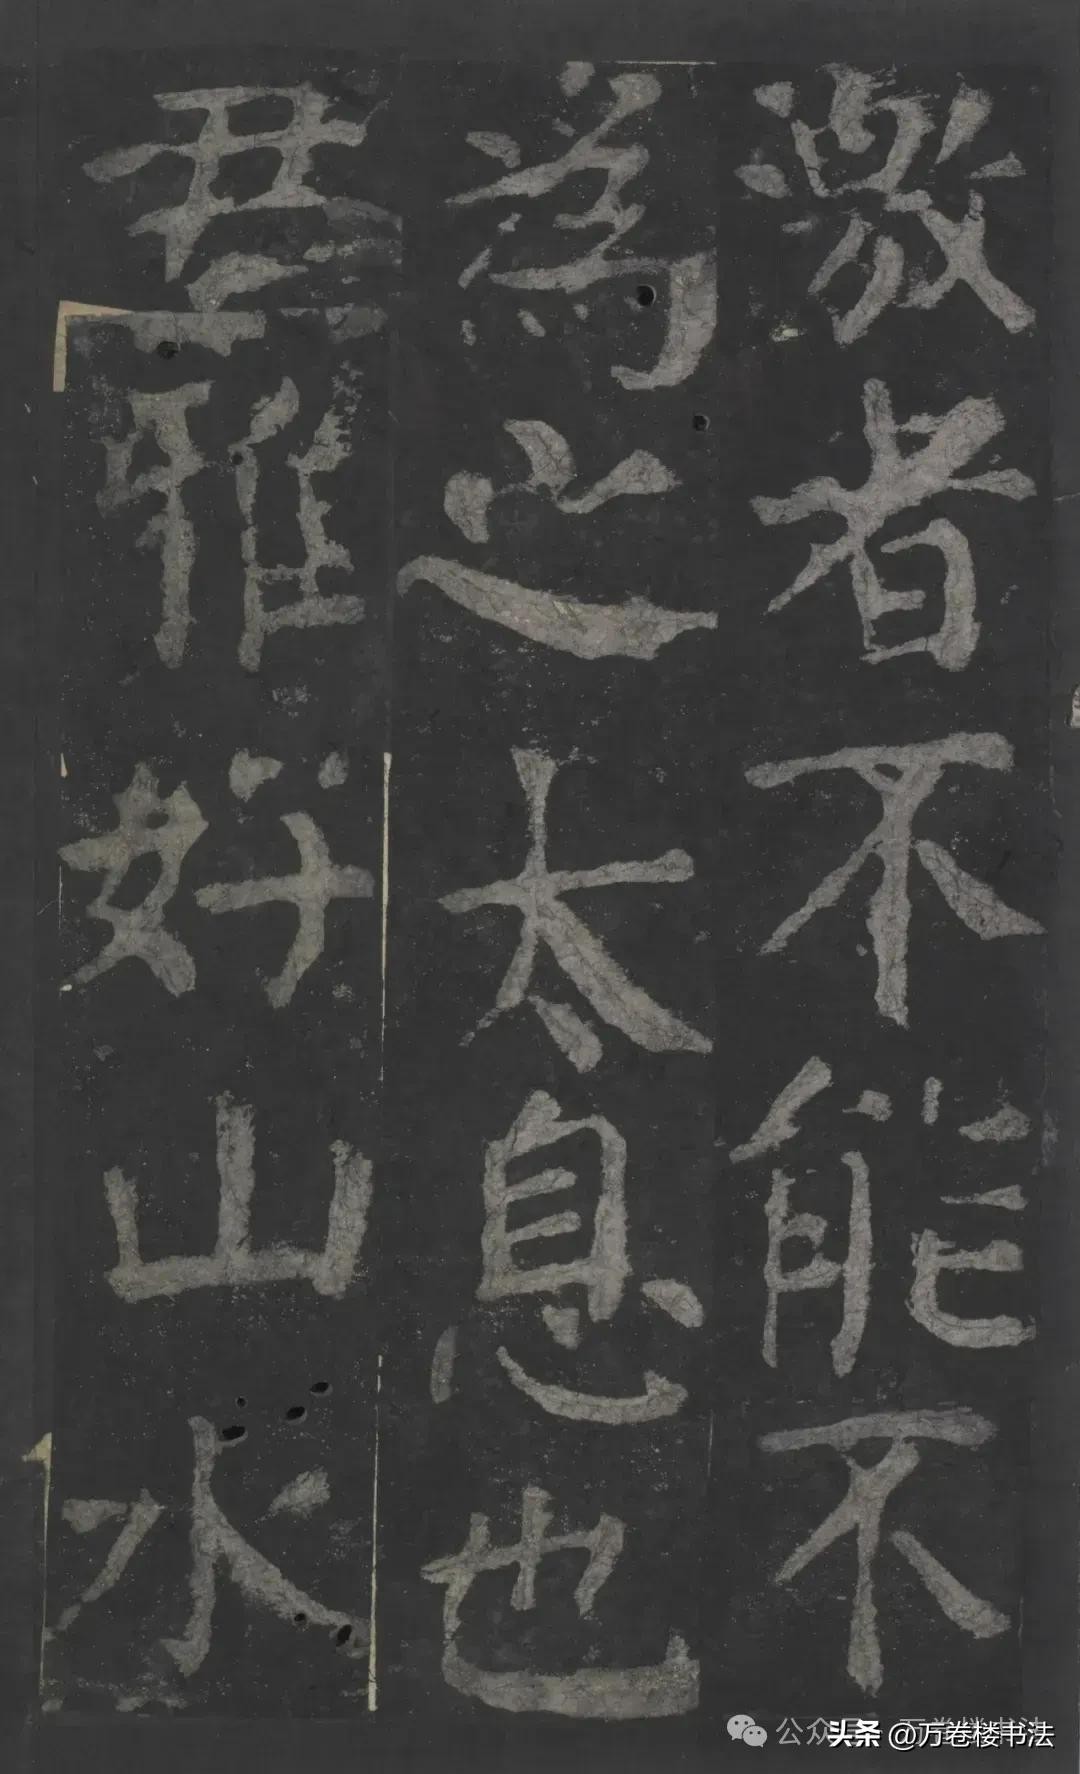 激者不能不
為之太息也
君雅好山水
头条 @万卷楼书法
公众号 万卷楼书法